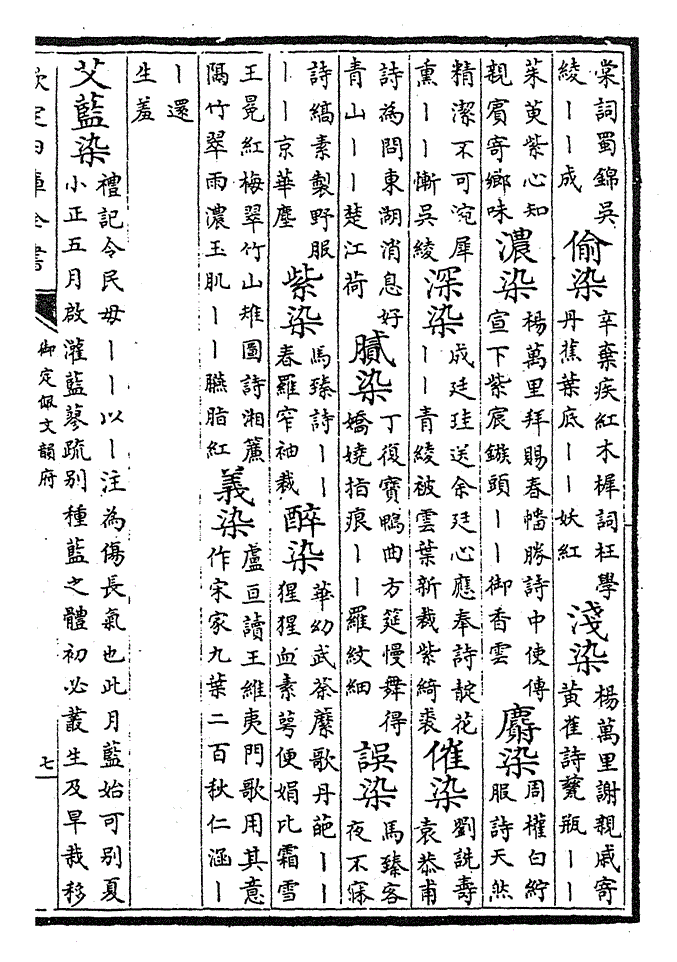 棠詞蜀錦吳
綾丨丨成
偷染
辛棄疾紅木樨詞枉學
丹蕉葉底丨丨妖紅
淺染
楊萬里謝親戚寄
黄雀詩甕瓶丨丨
茱萸紫心知
親賓寄鄉味
濃染
楊萬里拜賜春幡勝詩中使傳
宣下紫宸鏃頭丨丨御香雲
麝染
周權白紵
服詩天然
精潔不可涴犀
熏丨丨慚吳綾
深染
成廷珪送余廷心應奉詩靛花
丨丨青綾被雲葉新裁紫綺裘
催染
劉詵壽
袁恭甫
詩為問東湖消息好
青山丨丨楚江荷
膩染
丁復寶鴨曲方筵慢舞得
嬌嬈指痕丨丨羅紋細
誤染
馬臻客
夜不寐
詩縞素製野服
丨丨京華塵
紫染
馬臻詩丨丨
春羅窄袖裁
醉染
華幼武荼蘼歌丹葩丨丨
猩猩血素萼便娟比霜雪
王冕紅梅翠竹山雉圖詩湘簾
隔竹翠雨濃玉肌丨丨臙脂紅
義染
盧亘讀王維夷門歌用其意
作宋家九葉二百秋仁涵丨
丨還
生羞
艾藍染
禮記令民毋丨丨以丨注為傷長氣也此月藍始可别夏
小正五月啟灌藍蓼疏别種藍之體初必叢生及早栽移
欽定四庫全書
御定佩文韻府
七